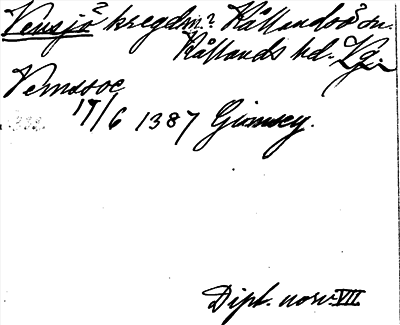 Vensjö? kregdm? Kållandsö sn.
Kållands hd. Vg.
Vemssoc
17/6 1387 Gimsey.
Dipl. norv. VII